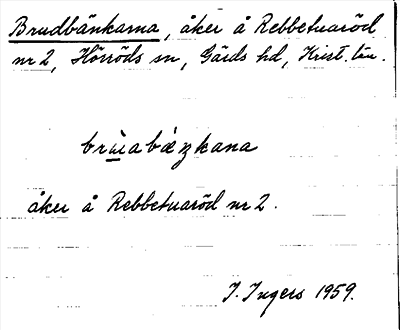 Brudbänkarna, åker å Rebbetuaröd
nr 2, Hörröds sn, Gärds hd, Krist. län.
åker å Rebbetuaröd nr 2.
I. Ingers 1959.